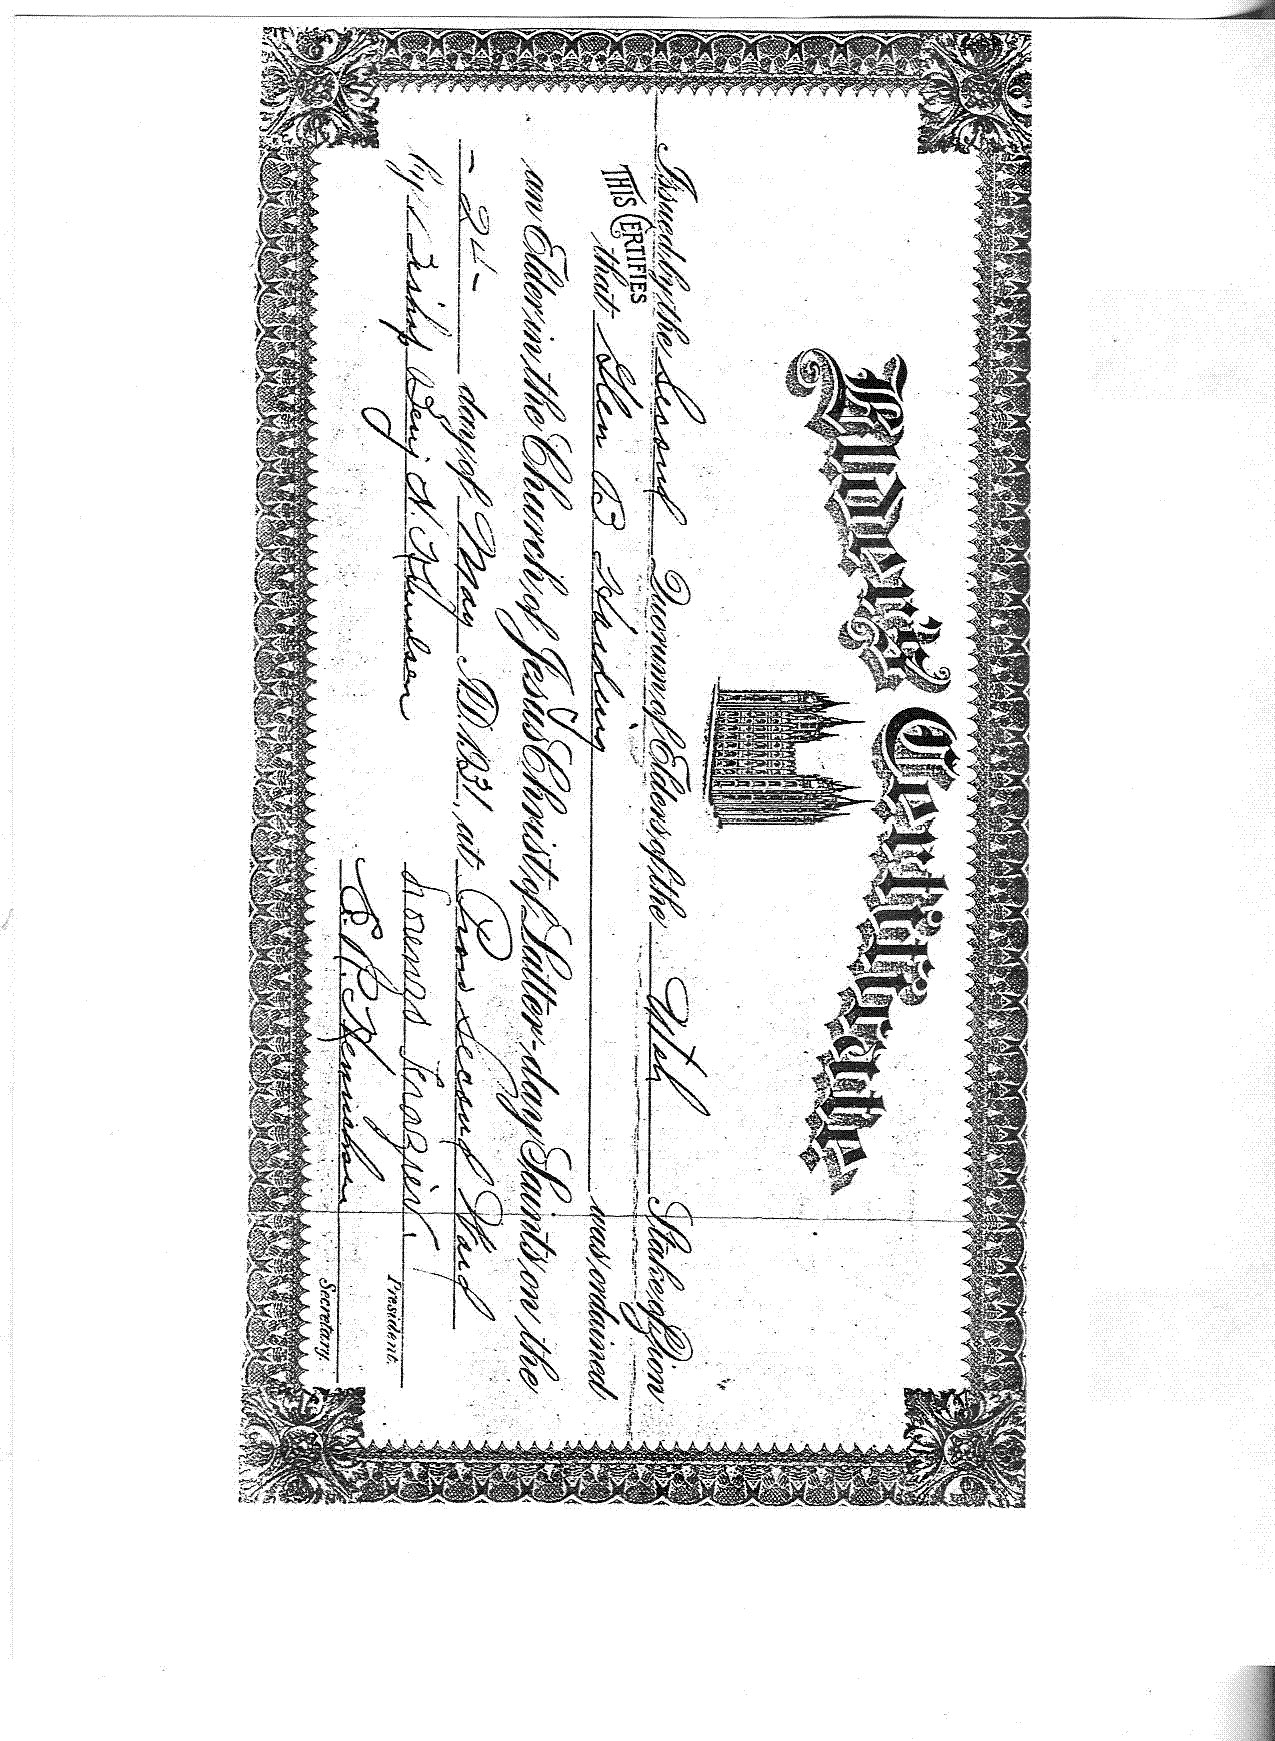 Elder's Certificate
Issued by the Second Quorum of Elders of the Utah Stake of Zion
THIS CERTIFIES that Glen B Harding was ordained
an Elder in the Church of Jesus Christ of Latter-day Saints on the
- 24 - day of May A.D. 1931, at Provo Second Ward
by Bishop Benj H. Knudsen
President.
Secretary.